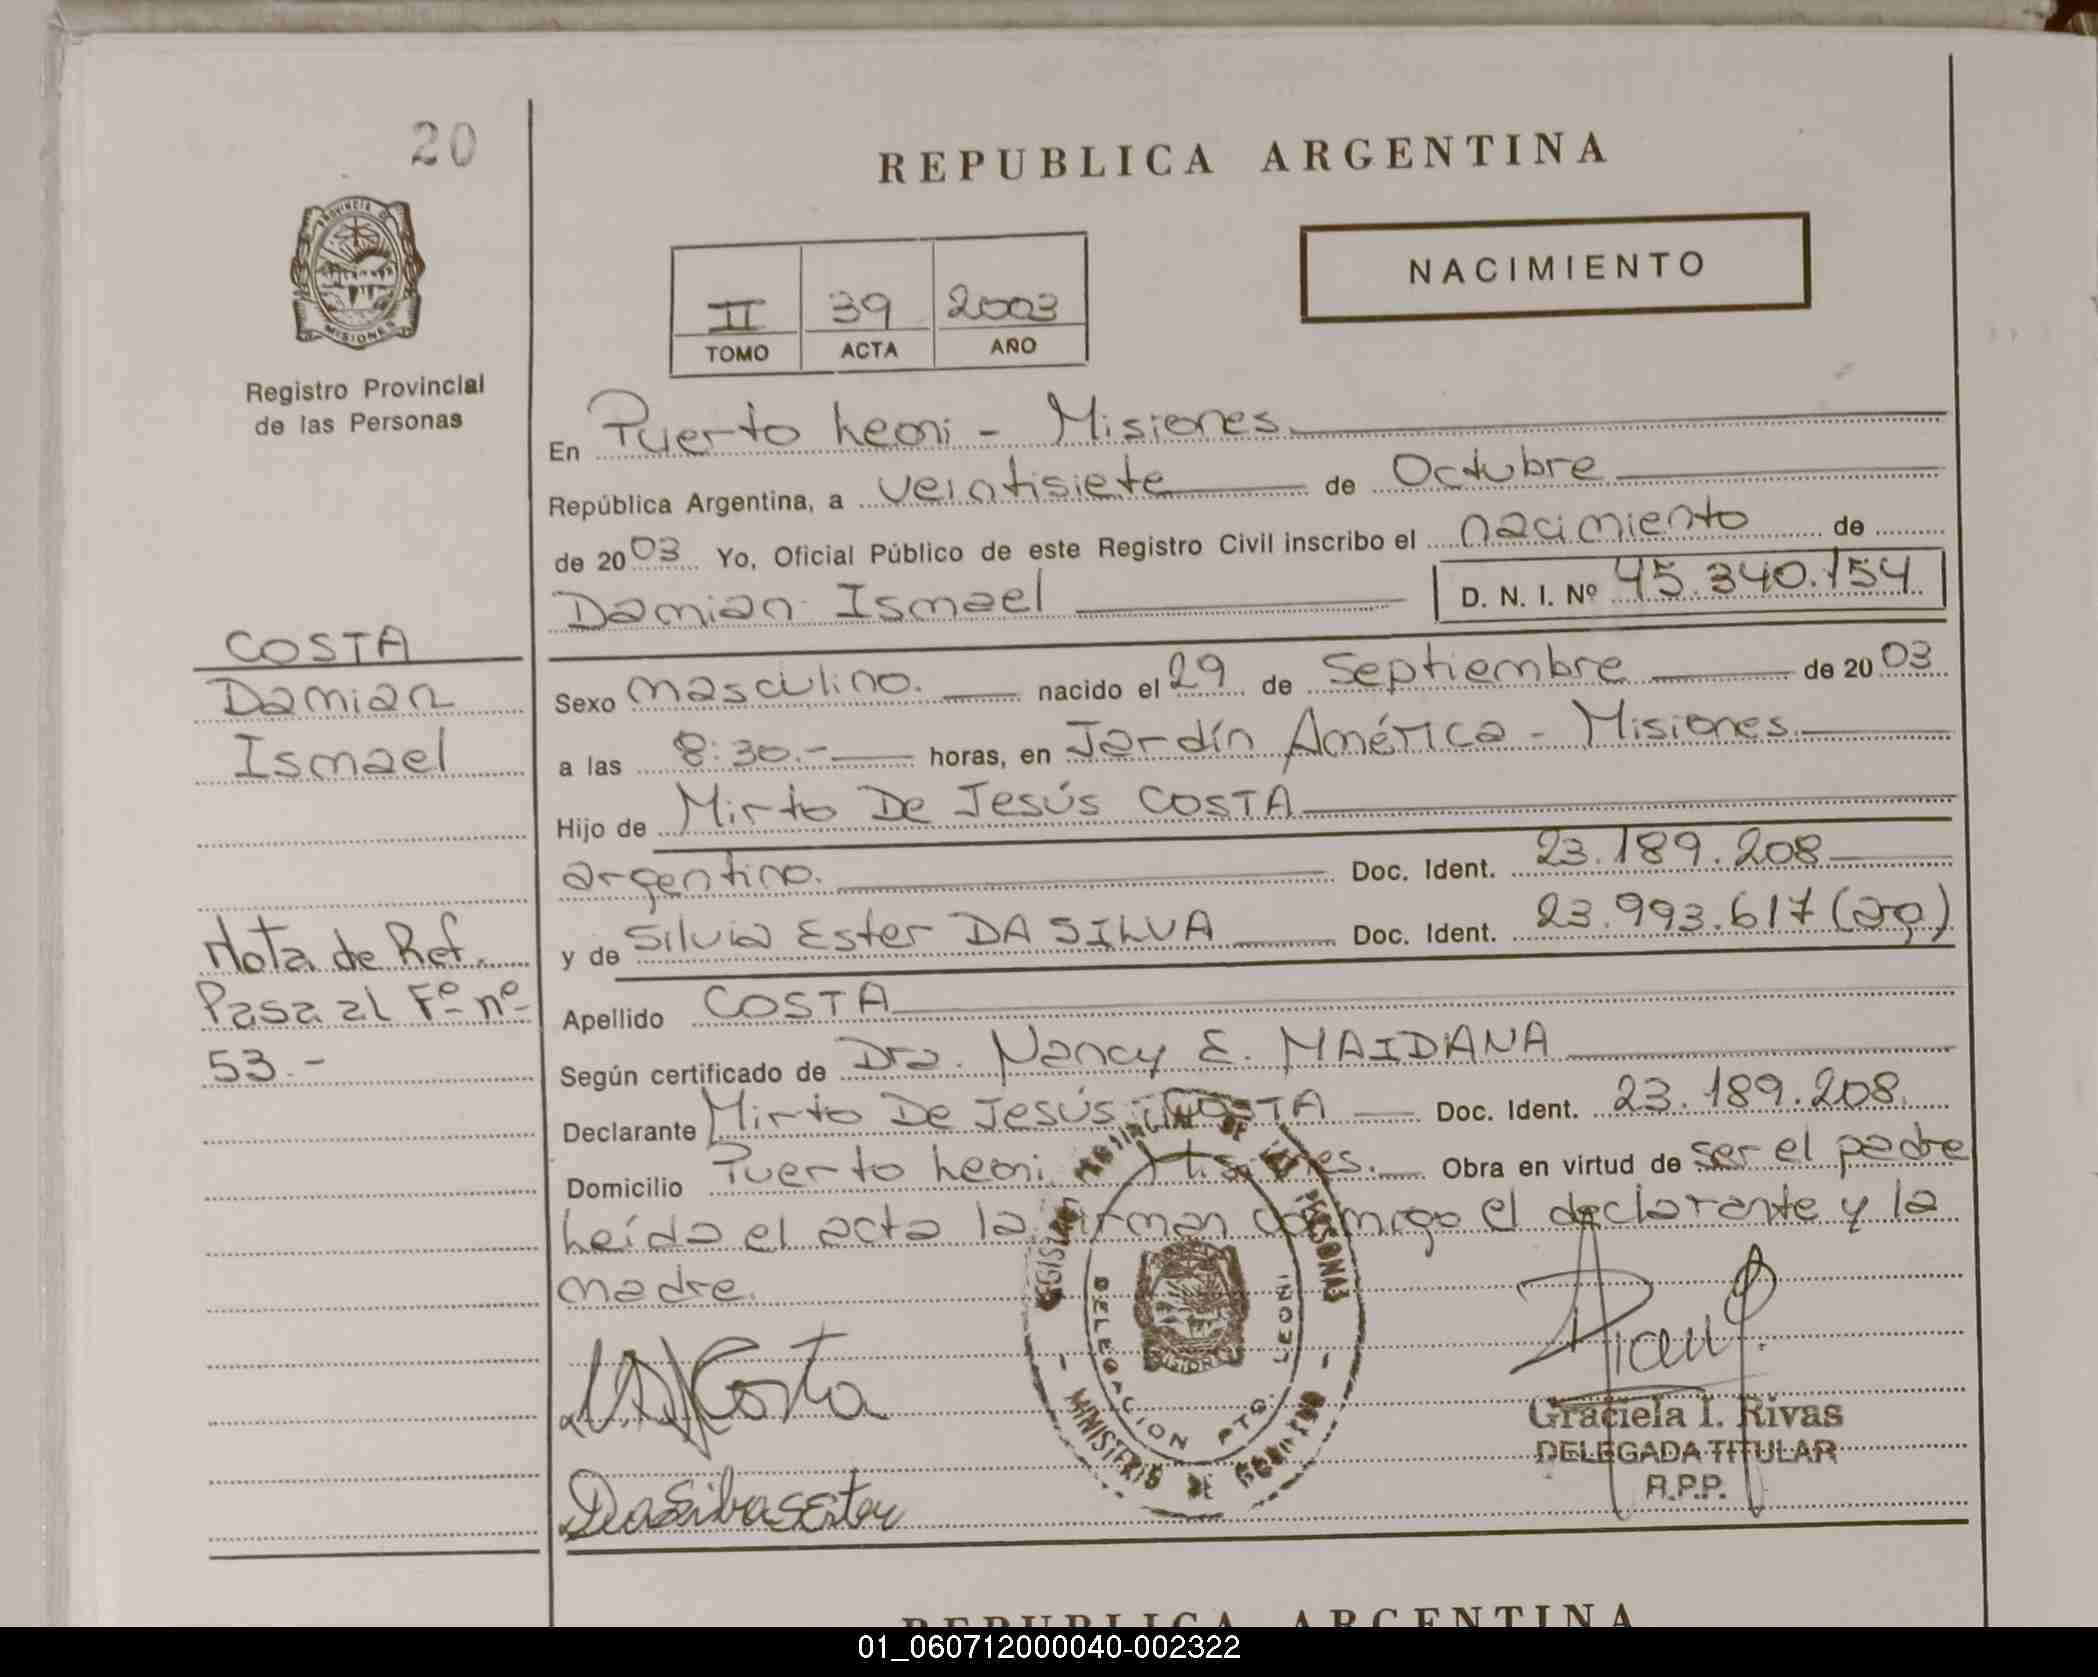 20
REPUBLICA ARGENTINA
PROVINCIA DE
MISIONES
NACIMIENTO
II 39 2003
TOMO ACTA AÑO
Registro Provincial
de las Personas
En Puerto Leoni - Misiones
República Argentina, a veintisiete de Octubre
de 2003 Yo, Oficial Público de este Registro Civil inscribo el nacimiento de
Damian Ismael D. N. I. Nº 45.340.154
COSTA
Damian
Ismael
Sexo masculino. nacido el 29 de Septiembre de 2003
a las 8:30.- horas, en Jardín América - Misiones.
Hijo de Mirto De Jesús COSTA
argentino. Doc. Ident. 23.189.208
y de Silvia Ester DA SILVA Doc. Ident. 23.993.617 (arg)
Nota de Ref.
Pasa al Fº nº
53.-
Apellido COSTA
Según certificado de Dra. Nancy E. MAIDANA
Declarante Mirto De Jesús COSTA Doc. Ident. 23.189.208.
Domicilio Puerto Leoni Misiones. Obra en virtud de ser el padre
Leída el acta la firman conmigo el declarante y la
madre.
REGISTRO PROVINCIAL DE LAS PERSONAS
DELEGACION PTO. LEONI
MISIONES
- MINISTERIO DE GOBIERNO -
Costa
Da Silva Ester
Graciela I. Rivas
DELEGADA TITULAR
R.P.P.
REPUBLICA ARGENTINA
01_060712000040-002322